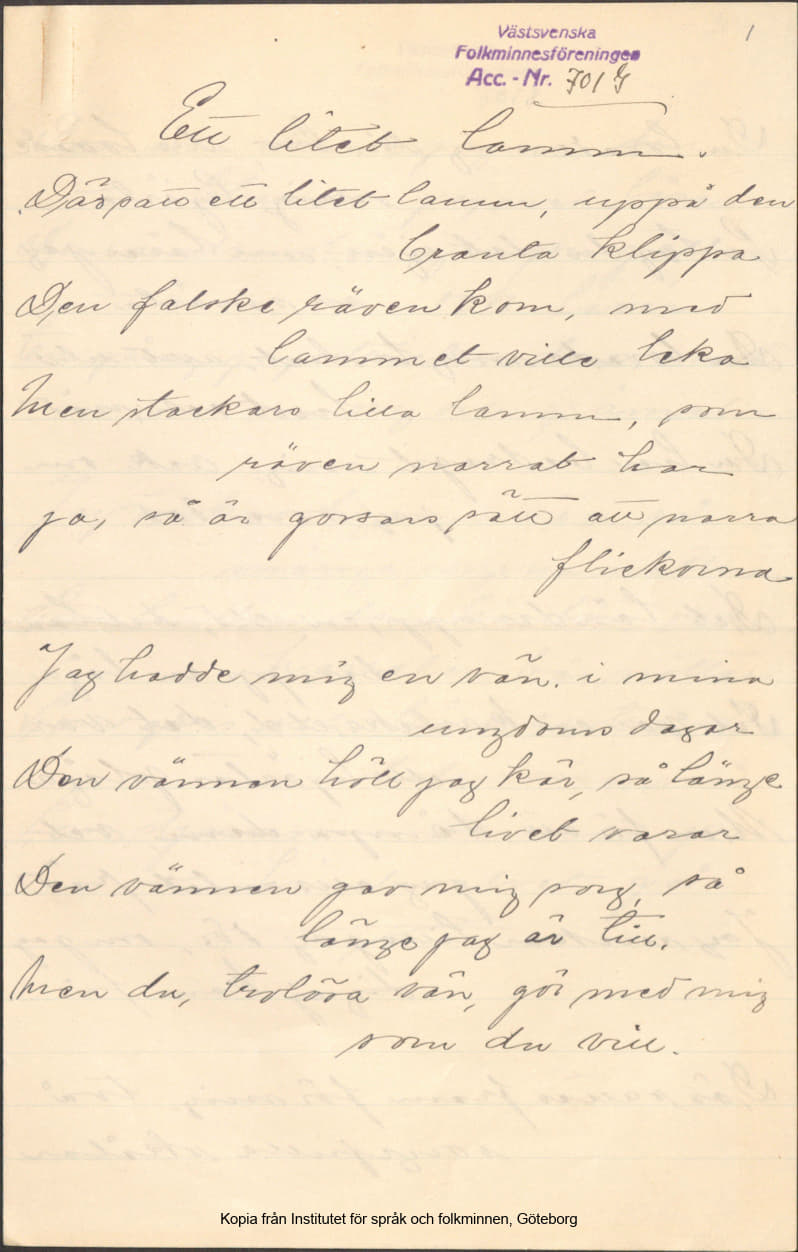 Västsvenska
Folkminnesföreningen
Acc. - Nr. 701 G
1
Ett litet lamm.
Där satt ett litet lamm, uppå den
branta klippa
Den falske räven kom, med
lammet ville leka
Men stackars lilla lamm, som
räven narrat har
ja, så är gossars sätt att narra
flickorna
Jag hadde mig en vän. i mina
ungdoms dagar
Den vännen höll jag kär, så länge
livet varar
Den vännen gav mig sorg, så
länge jag är till.
Men du, trolöva vän, gör med mig
som du vill.
Kopia från Institutet för språk och folkminnen, Göteborg